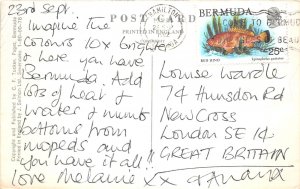 23rd Sept.
POST CARD
PRINTED IN ENGLAND
HAMILTON
BERMUDA
25c
RED HIND
Imagine the
colours 10x brighter
& here you have
Bermuda. Add
lots of heat &
water & numb
bottoms from
mopeds and
you have it all!!
love Melanie xx
Louise Wardle
74 Hunsdon Rd
New Cross
London SE 14
GREAT BRITAIN